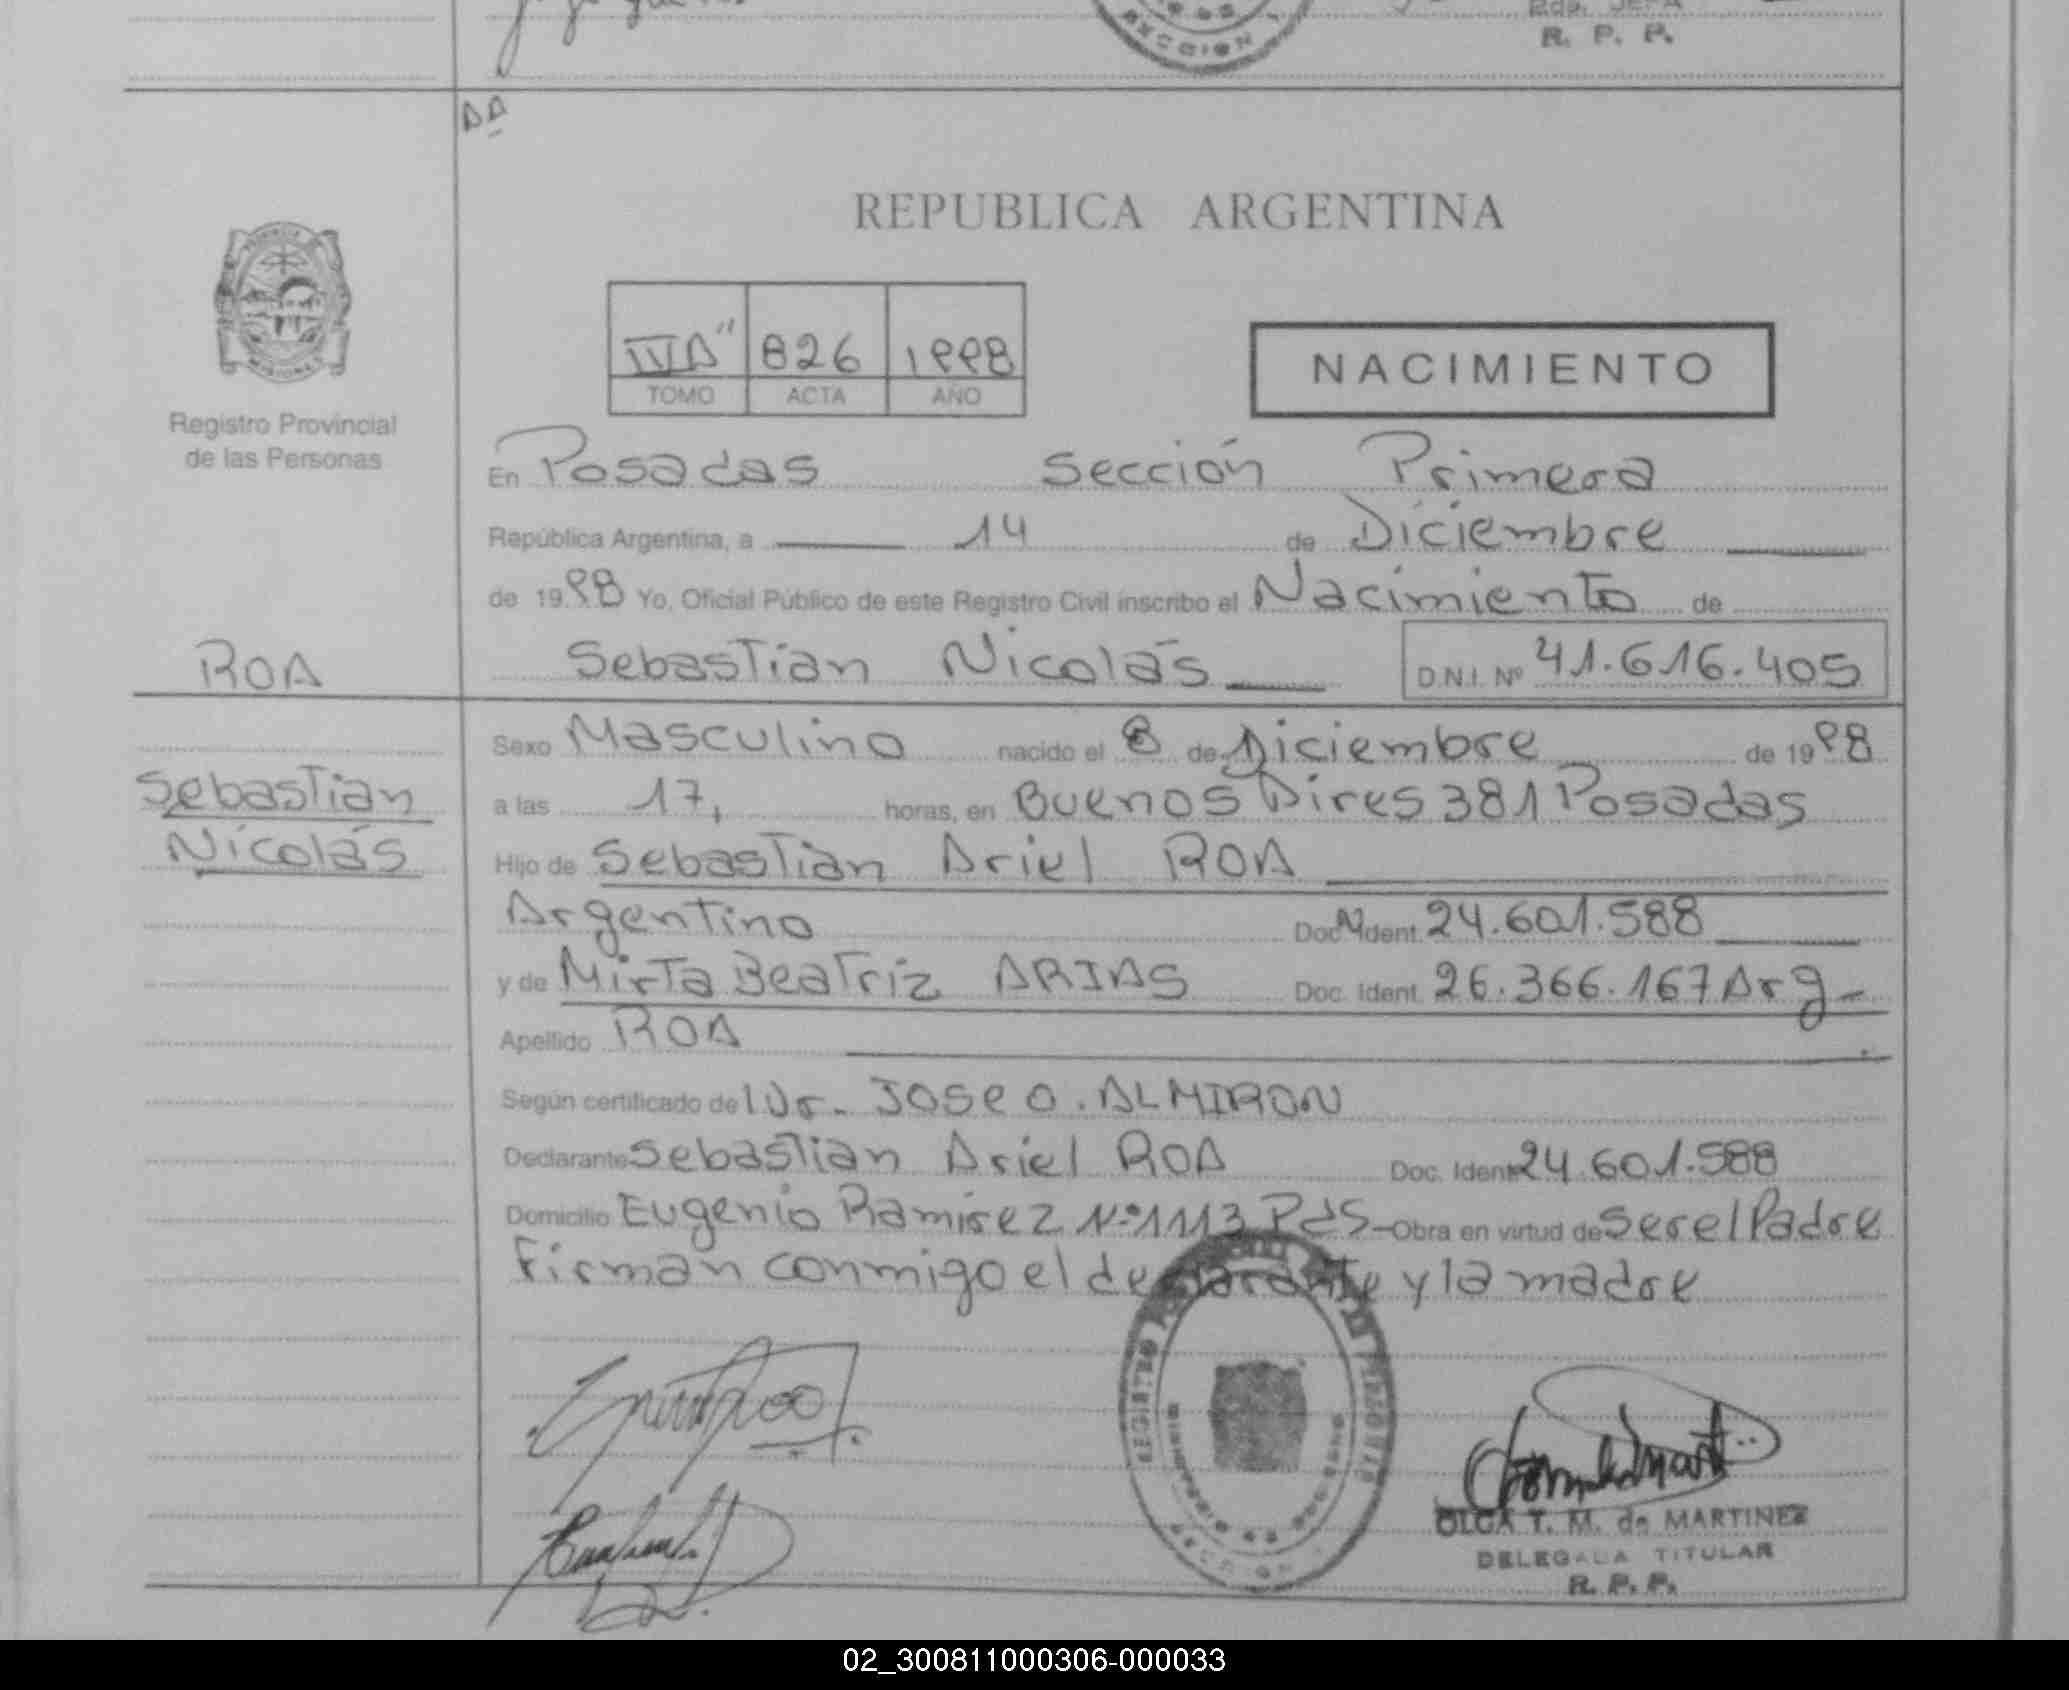 SECCION
R. P. P.
AA
REPUBLICA ARGENTINA
PROVINCIA DE
MISIONES
IV A" 826 1998
TOMO ACTA AÑO
NACIMIENTO
Registro Provincial
de las Personas
En Posadas Sección Primera
República Argentina, a 14 de Diciembre
de 1998 Yo, Oficial Público de este Registro Civil inscribo el Nacimiento de
ROA
Sebastian Nicolás D.N.I. Nº 41.616.405
Sexo Masculino nacido el 8 de Diciembre de 1998
Sebastian
Nicolás
a las 17, horas, en Buenos Aires 381 Posadas
Hijo de Sebastian Ariel ROA
Argentino Doc. Ident. 24.601.588
y de Mirta Beatriz ARIAS Doc. Ident. 26.366.167 Arg-
Apellido ROA
Según certificado del Dr. JOSE O. ALMIRON
Declarante Sebastian Ariel ROA Doc. Ident. 24.601.588
Domicilio Eugenio Ramirez Nº 1113 Pds- Obra en virtud de ser el Padre
Firman conmigo el declarante y la madre
OLGA T. M. de MARTINEZ
DELEGADA TITULAR
R. P. P.
02_300811000306-000033